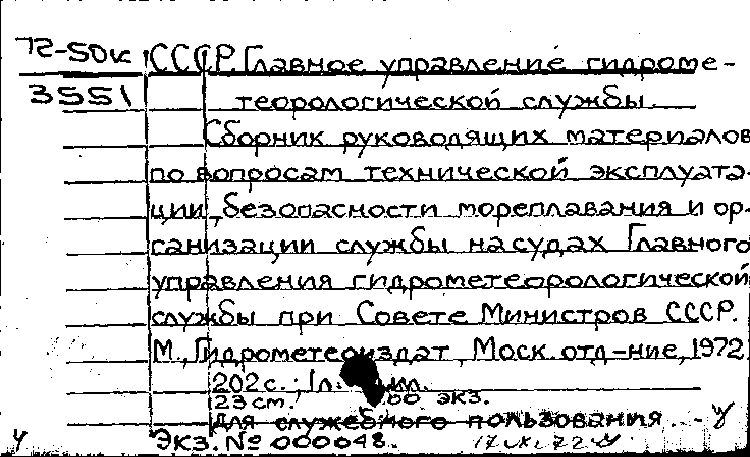 72-50к СССР. Главное управление гидроме-
3551 теорологической службы.
Сборник руководящих материалов
по вопросам технической эксплуата-
ции, безопасности мореплавания и ор-
ганизации службы на судах Главного
управления гидрометеорологической
службы при Совете Министров СССР.
М., Гидрометеоиздат, Моск. отд-ние, 1972
202 с.; 1 л. илл.
23 см. 00 экз.
Для служебного пользования.
Экз. № 000048.